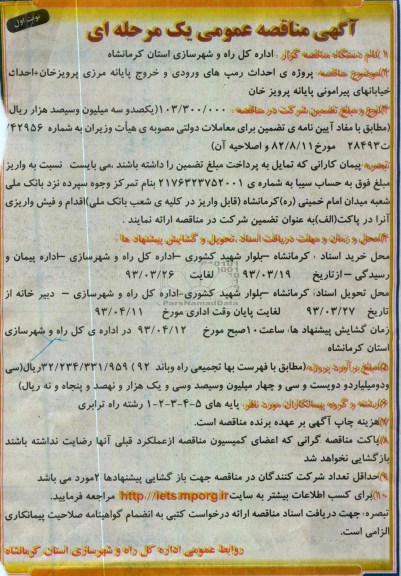 نوبت اول
آگهی مناقصه عمومی یک مرحله ای
۱) نام دستگاه مناقصه گزار : اداره کل راه و شهرسازی استان کرمانشاه
۲) موضوع مناقصه: پروژه ی احداث رمپ های ورودی و خروج پایانه مرزی پرویزخان+احداث
خیابانهای پیرامونی پایانه پرویز خان
۳) نوع و مبلغ تضمین شرکت در مناقصه : ۱۰۳/۳۰۰/۰۰۰(یکصدو سه میلیون وسیصد هزار ریال
(مطابق با مفاد آیین نامه ی تضمین برای معاملات دولتی مصوبه ی هیأت وزیران به شماره ۴۲۹۵۶/
ت۲۸۴۹۳ مورخ۸۲/۸/۱۱ و اصلاحیه آن)
تبصره: پیمان کارانی که تمایل به پرداخت مبلغ تضمین را داشته باشند ،می بایست نسبت به واریز
مبلغ فوق به حساب سیبا به شماره ی ۲۱۷۶۳۲۳۷۵۲۰۰۱ بنام تمرکز وجوه سپرده نزد بانک ملی
شعبه میدان امام خمینی (ره)کرمانشاه (قابل واریز در کلیه ی شعب بانک ملی)اقدام و فیش واریزی
آنرا در پاکت(الف)به عنوان تضمین شرکت در مناقصه ارائه نمایند .
۴) محل و زمان و مهلت دریافت اسناد ،تحویل و گشایش پیشنهاد ها :
محل خرید اسناد : کرمانشاه –بلوار شهید کشوری –اداره کل راه و شهرسازی –اداره پیمان و
رسیدگی – ازتاریخ ۹۳/۰۳/۱۹ لغایت ۹۳/۰۳/۲۶
محل تحویل اسناد: کرمانشاه –بلوار شهید کشوری–اداره کل راه و شهرسازی – دبیر خانه از
تاریخ ۹۳/۰۳/۲۷ لغایت پایان وقت اداری مورخ ۹۳/۰۴/۱۱
زمان گشایش پیشنهاد ها، ساعت۱۰صبح مورخ ۹۳/۰۴/۱۲ در اداره ی کل راه و شهرسازی
استان کرمانشاه
۵) مبلغ برآورد پروژه:(مطابق با فهرست بها تجمیعی راه وباند ۹۲) ۳۲/۲۳۴/۳۳۱/۹۵۹ریال(سی
ودومیلیاردو دویست و سی و چهار میلیون وسیصد وسی و یک هزار و نهصد و پنجاه و نه ریال)
۶) رشته و گروه پیمانکاران مورد نظر: پایه های ۵-۴-۳-۲-۱ رشته راه ترابری
۷) هزینه چاپ آگهی بر عهده برنده مناقصه است.
۸) پاکت مناقصه گرانی که اعضای کمیسیون مناقصه ازعملکرد قبلی آنها رضایت نداشته باشند
بازگشایی نخواهد شد
۹) حداقل تعداد شرکت کنندگان در مناقصه جهت باز گشایی پیشنهادها ۲مورد می باشد
۱۰) برای کسب اطلاعات بیشتر به سایت http://iets.mporg.ir مراجعه فرمایید.
تبصره: جهت دریافت اسناد مناقصه ارائه درخواست کتبی به انضمام گواهینامه صلاحیت پیمانکاری
الزامی است.
روابط عمومی اداره کل راه و شهرسازی استان کرمانشاه